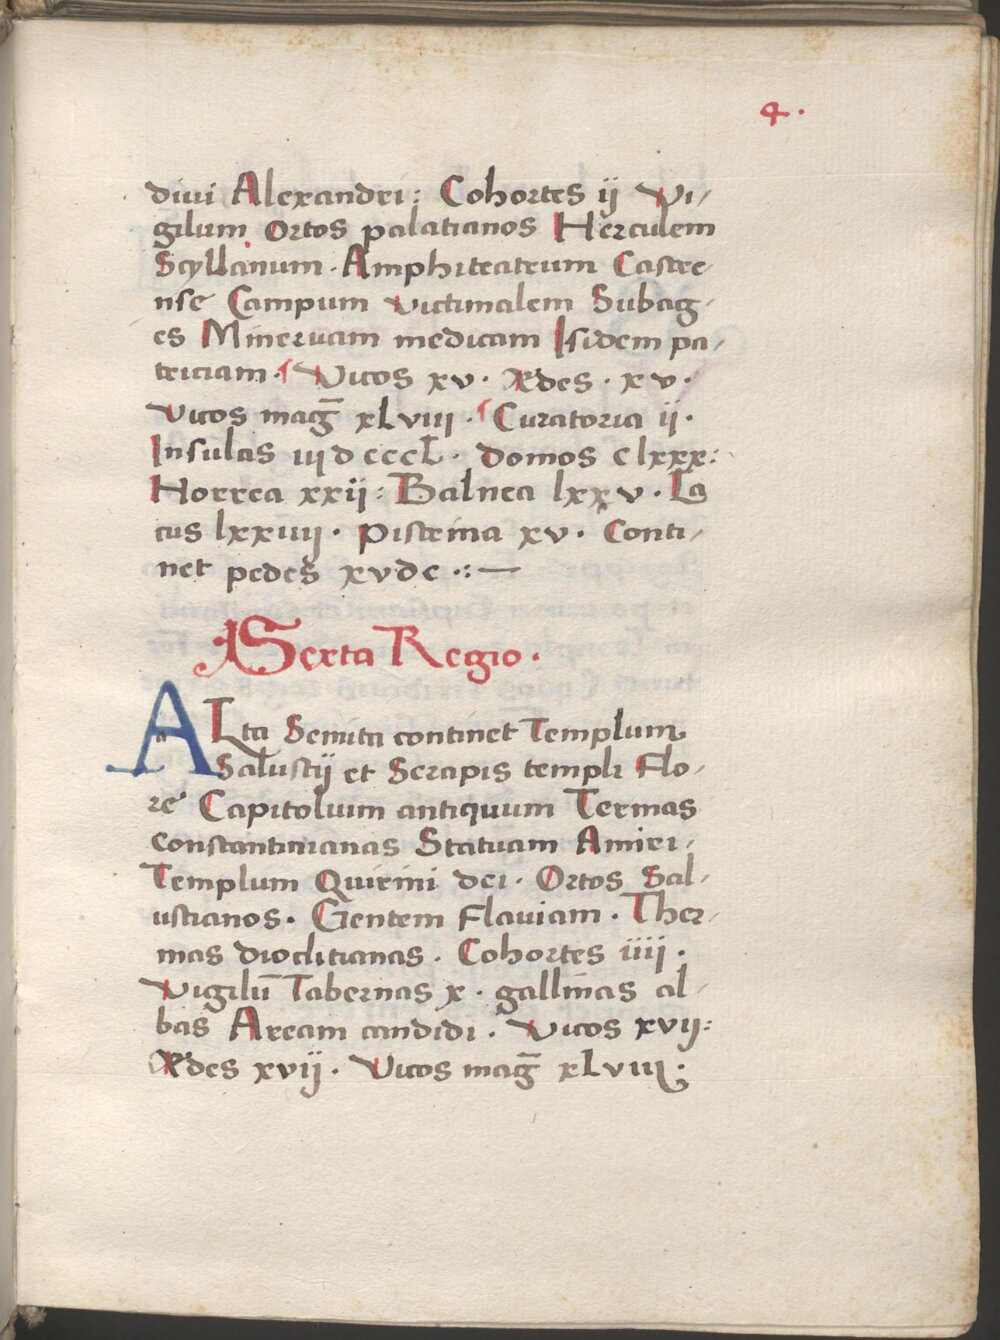 4.
diui Alexandri: Cohortes ij Vi-
gilum Ortos palatianos Herculem
Scyllanum. Amphiteatrum Castre-
nse Campum victimalem Subag-
es Mineruam medicam Isidem pa-
triciam. Vicos xv. Ædes. xv.
Vicos mag̅ xlviii. Curatoria ij.
Insulas iijdcccl. domos clxxx:
Horrea xxij: Balnea lxxv. La
cus lxxiiij. Pistrina xv. Conti-
net pedes xvdc.:—
Sexta Regio.
ALta Semita continet Templum
Salustij et Serapis templi Flo-
re Capitoluim antiquum Termas
constantinianas Statuam Amiri.
Templum Quirini dei. Ortos Sal-
ustianos. Gentem Flauiam. Ther-
mas dioclitianas. Cohortes iiij.
Vigilu̅ Tabernas x. gallinas al-
bas Aream candidi. Vicos xvij:
Ædes xvij. Vicos mag̅ xlviii.